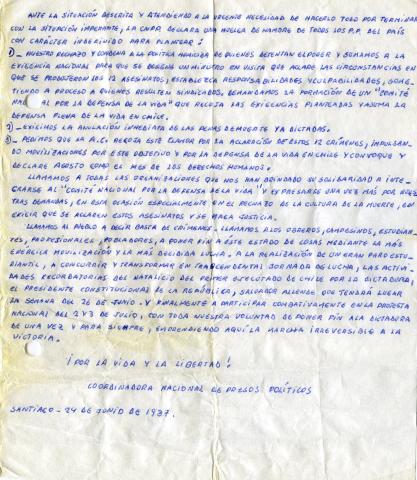 ANTE LA SITUACIÓN DESCRITA Y ATENDIENDO A LA URGENTE NECESIDAD DE HACERLO TODO POR TERMINAR
CON LA SITUACIÓN IMPERANTE, LA CNPP. DECLARA UNA HUELGA DE HAMBRE DE TODOS LOS P.P. DEL PAÍS
CON CARÁCTER INDEFINIDO PARA PLANTEAR:
1)_ NUESTRO RECHAZO Y CONDENA A LA POLÍTICA HOMICIDA DE QUIENES DETENTAN EL PODER Y SUMARNOS A LA
EXIGENCIA NACIONAL PARA QUE SE DESIGNE UN MINISTRO EN VISITA QUE ACLARE LAS CIRCUNSTANCIAS EN
QUE SE PRODUJERON LOS 12 ASESINATOS, ESTABLEZCA RESPONSABILIDADES Y CULPABILIDADES, SOME-
TIENDO A PROCESO A QUIENES RESULTEN SINDICADOS. DEMANDAMOS LA FORMACIÓN DE UN "COMITÉ
NACIONAL POR LA DEFENSA DE LA VIDA" QUE RECOJA LAS EXIGENCIAS PLANTEADAS Y ASUMA LA
DEFENSA PLENA DE LA VIDA EN CHILE.
2)_ EXIGIMOS LA ANULACIÓN INMEDIATA DE LAS PENAS DE MUERTE YA DICTADAS.
3)_ PEDIMOS QUE LA A.C. RECOJA ESTE CLAMOR POR LA ACLARACIÓN DE ESTOS 12 CRÍMENES, IMPULSAN-
DO MOVILIZACIONES POR ESTE OBJETIVO Y POR LA DEFENSA DE LA VIDA EN CHILE Y CONVOQUE Y
DECLARE AGOSTO COMO EL MES DE LOS DERECHOS HUMANOS.
LLAMAMOS A TODAS LAS ORGANIZACIONES QUE NOS HAN BRINDADO SU SOLIDARIDAD A INTE-
GRARSE AL "COMITÉ NACIONAL POR LA DEFENSA DE LA VIDA" Y EXPRESARSE UNA VEZ MÁS POR NUES-
TRAS DEMANDAS, EN ESTA OCASIÓN ESPECIALMENTE EN EL RECHAZO DE LA CULTURA DE LA MUERTE, CON
EXIGIR QUE SE ACLAREN ESTOS ASESINATOS Y SE HAGA JUSTICIA.
LLAMAMOS AL PUEBLO A DECIR BASTA DE CRÍMENES. LLAMAMOS A LOS OBREROS, CAMPESINOS, ESTUDIAN-
TES, PROFESIONALES, POBLADORES, A PONER FIN A ESTE ESTADO DE COSAS MEDIANTE LA MÁS
ENÉRGICA MOVILIZACIÓN Y LA MÁS DECIDIDA LUCHA. A LA REALIZACIÓN DE UN GRAN PARO ESTU-
DIANTIL, A CONCURRIR Y TRANSFORMAR EN TRASCENDENTAL JORNADA DE LUCHA, LAS ACTIVI-
DADES RECORDATORIAS DEL NATALICIO DEL PRIMER EJECUTADO DE CHILE POR LA DICTADURA,
EL PRESIDENTE CONSTITUCIONAL DE LA REPÚBLICA, SALVADOR ALLENDE QUE TENDRÁ LUGAR
LA SEMANA DEL 26 DE JUNIO. Y FINALMENTE A PARTICIPAR COMBATIVAMENTE EN LA PROTESTA
NACIONAL DEL 2 Y 3 DE JULIO, CON TODA NUESTRA VOLUNTAD DE PONER FIN A LA DICTADURA
DE UNA VEZ Y PARA SIEMPRE, EMPRENDIENDO AQUÍ LA MARCHA IRREVERSIBLE A LA
VICTORIA.
¡POR LA VIDA Y LA LIBERTAD!
COORDINADORA NACIONAL DE PRESOS POLÍTICOS
SANTIAGO - 24 DE JUNIO DE 1987.